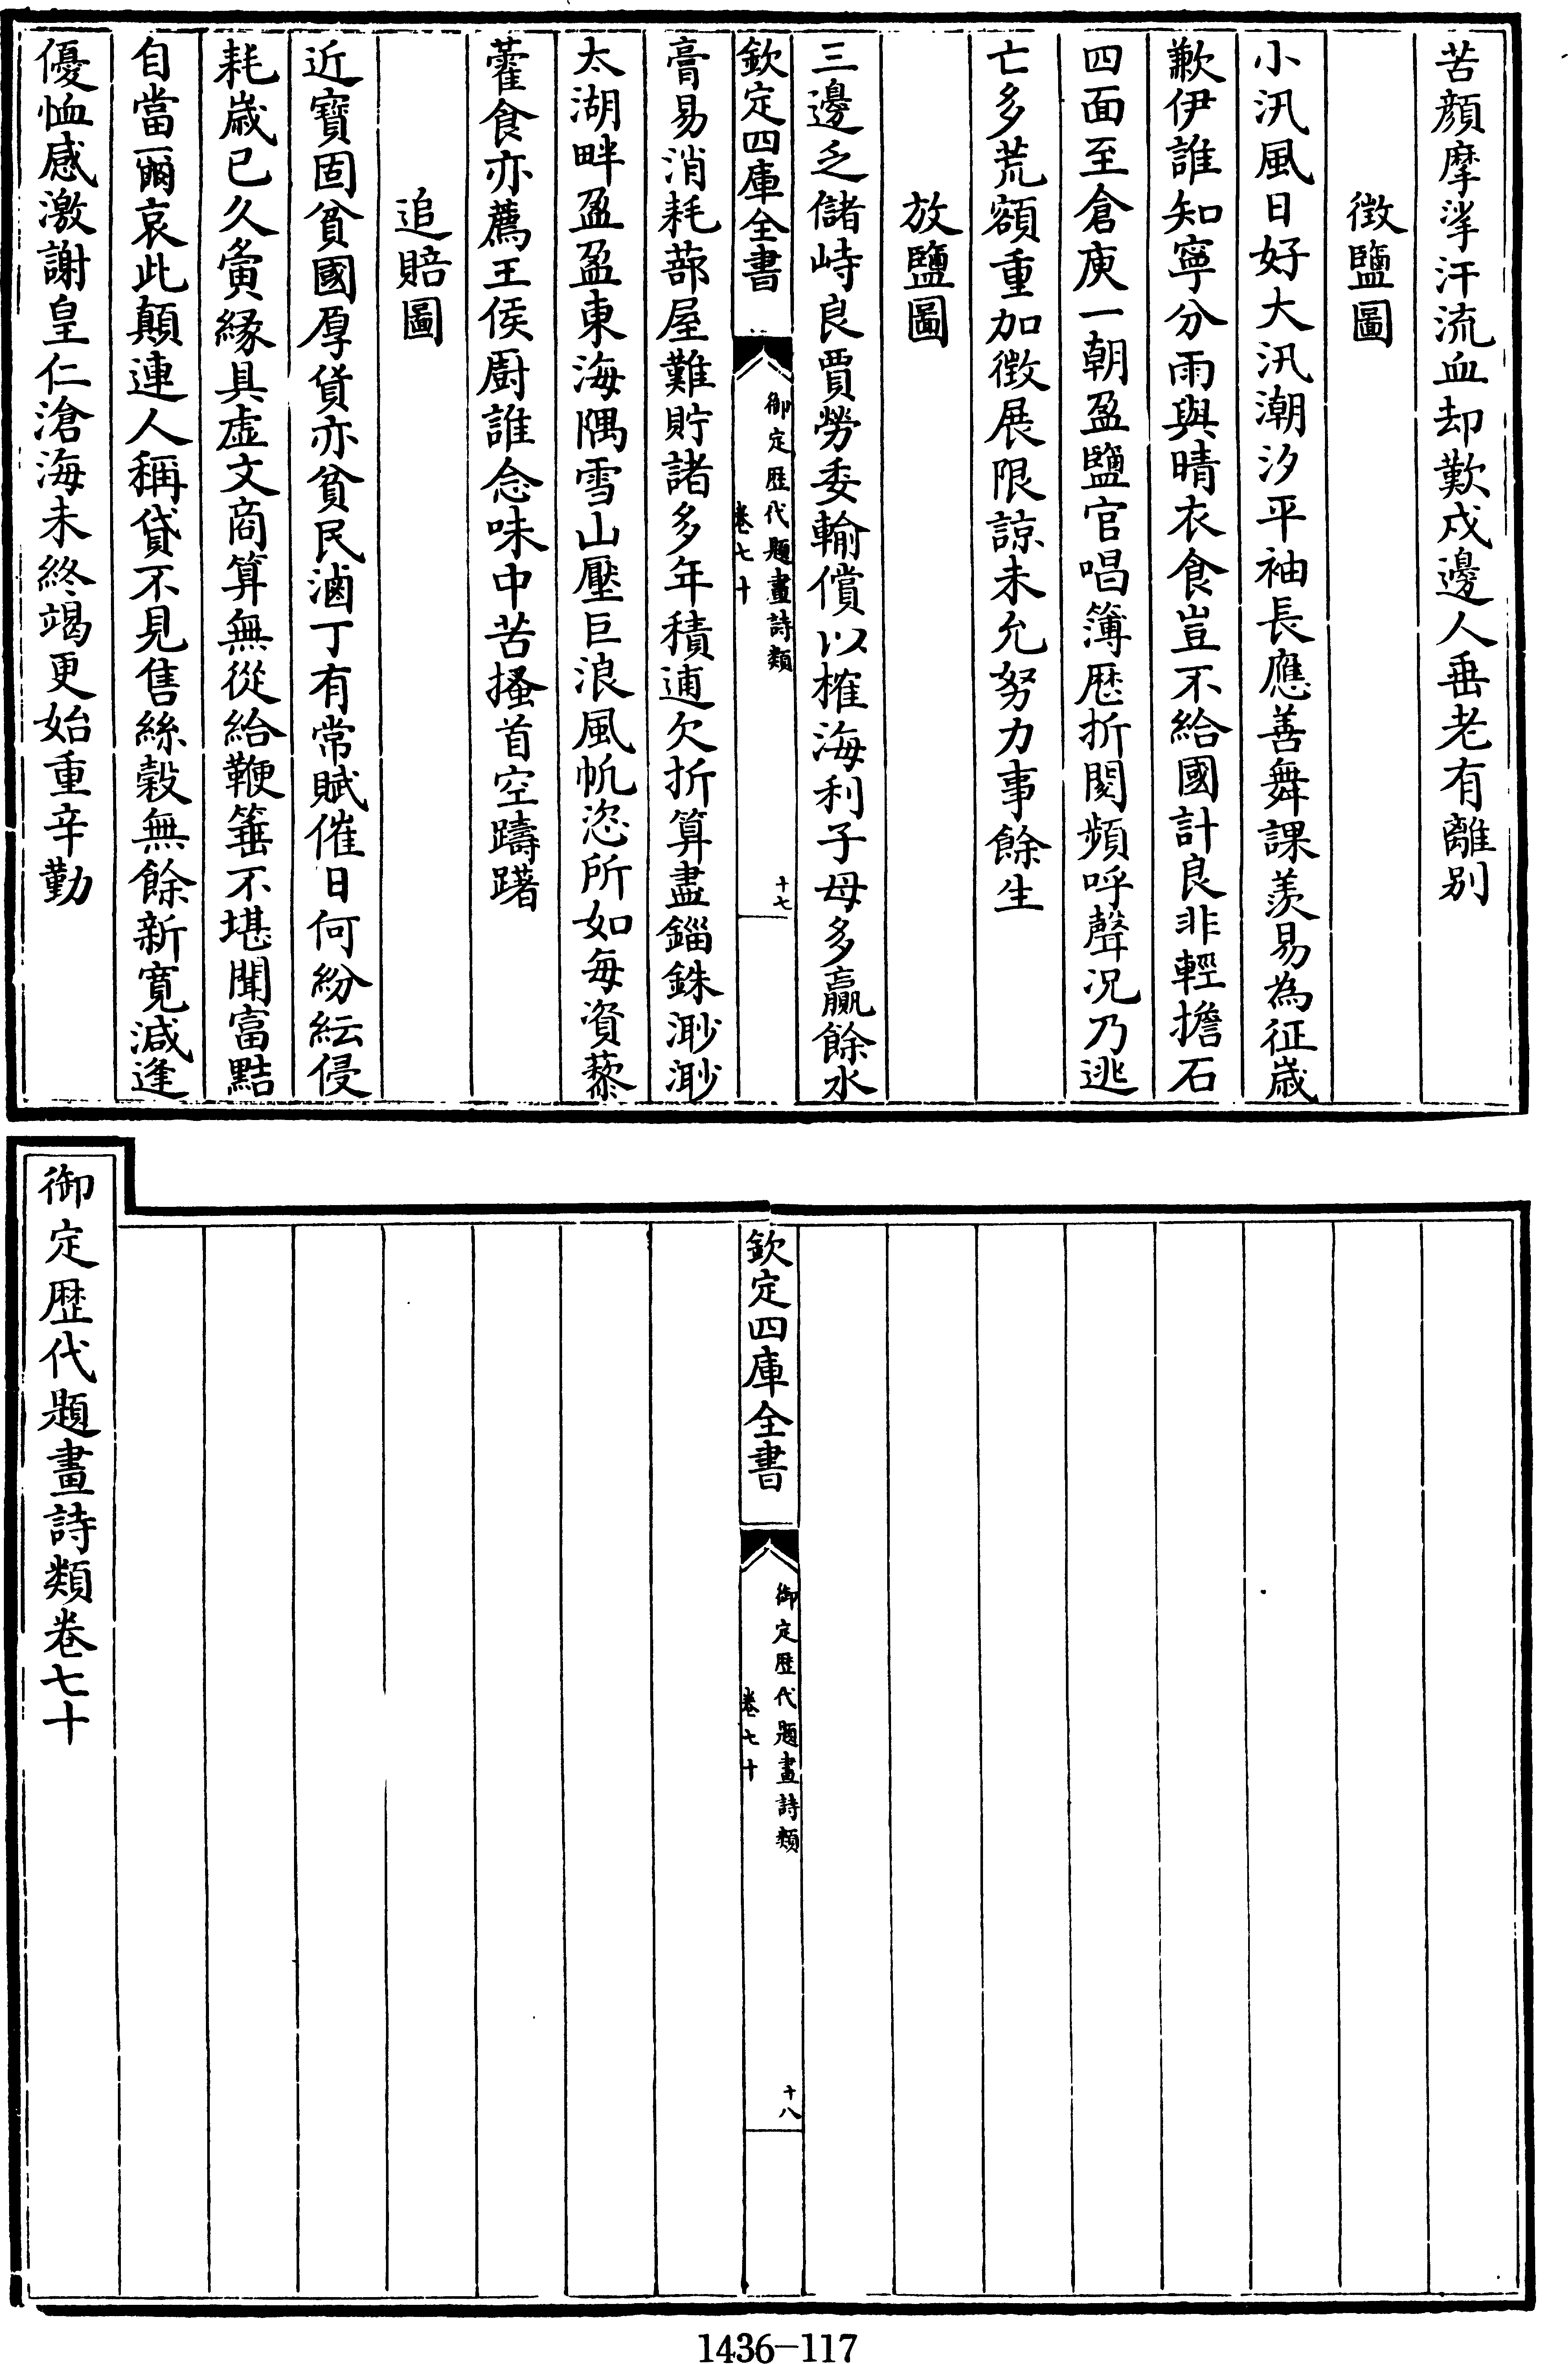 苦顔摩挲汗流血却歎戍邊人垂老有離别
徴鹽圖
小汛風日好大汛潮汐平袖長應善舞課羨易為征嵗
歉伊誰知寜分雨與晴衣食豈不給國計良非輕擔石
四面至倉庾一朝盈鹽官唱簿厯折閱頻呼聲况乃逃
亡多荒額重加徴展限諒未允努力事餘生
放鹽圖
三邊乏儲峙良賈勞委輸償以榷海利子母多贏餘水
欽定四庫全書
御定歴代題畫詩類
卷七十
十七
膏易消耗蔀屋難貯諸多年積逋欠折算盡錙銖渺渺
太湖畔盈盈東海隅雪山壓巨浪風帆恣所如毎資藜
藿食亦薦王侯厨誰念味中苦搔首空躊躇
追賠圖
近寳固貧國厚貨亦貧民滷丁有常賦催日何紛紜侵
耗嵗已久夤縁具虛文商算無從給鞭箠不堪聞富黠
自當爾哀此顛連人稱貸不見售絲榖無餘新寛減逢
優恤感激謝皇仁滄海未終竭更始重辛勤
欽定四庫全書
御定歴代題畫詩類
卷七十
十八
御定歴代題畫詩類卷七十
1436-117